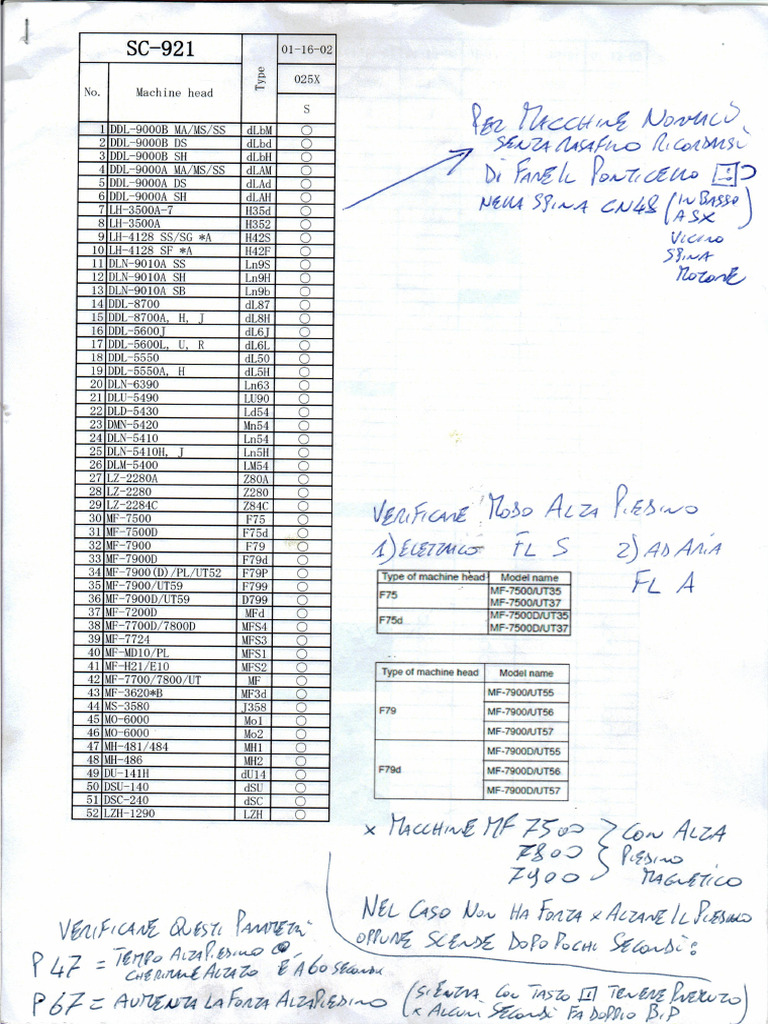 SC-921
Type
01-16-02
025X
No.
Machine head
S
1 DDL-9000B MA/MS/SS dLbM ○
2 DDL-9000B DS dLbd ○
3 DDL-9000B SH dLbH ○
4 DDL-9000A MA/MS/SS dLAM ○
5 DDL-9000A DS dLAd ○
6 DDL-9000A SH dLAH ○
7 LH-3500A-7 H35d ○
8 LH-3500A H352 ○
9 LH-4128 SS/SG *A H42S ○
10 LH-4128 SF *A H42F ○
11 DLN-9010A SS Ln9S ○
12 DLN-9010A SH Ln9H ○
13 DLN-9010A SB Ln9b ○
14 DDL-8700 dL87 ○
15 DDL-8700A, H, J dL8H ○
16 DDL-5600J dL6J ○
17 DDL-5600L, U, R dL6L ○
18 DDL-5550 dL50 ○
19 DDL-5550A, H dL5H ○
20 DLN-6390 Ln63 ○
21 DLU-5490 LU90 ○
22 DLD-5430 Ld54 ○
23 DMN-5420 Mn54 ○
24 DLN-5410 Ln54 ○
25 DLN-5410H, J Ln5H ○
26 DLM-5400 LM54 ○
27 LZ-2280A Z80A ○
28 LZ-2280 Z280 ○
29 LZ-2284C Z84C ○
30 MF-7500 F75 ○
31 MF-7500D F75d ○
32 MF-7900 F79 ○
33 MF-7900D F79d ○
34 MF-7900(D)/PL/UT52 F79P ○
35 MF-7900/UT59 F799 ○
36 MF-7900D/UT59 D799 ○
37 MF-7200D MFd ○
38 MF-7700D/7800D MFS4 ○
39 MF-7724 MFS3 ○
40 MF-MD10/PL MFS1 ○
41 MF-H21/E10 MFS2 ○
42 MF-7700/7800/UT MF ○
43 MF-3620*B MF3d ○
44 MS-3580 J358 ○
45 MO-6000 Mo1 ○
46 MO-6000 Mo2 ○
47 MH-481/484 MH1 ○
48 MH-486 MH2 ○
49 DU-141H dU14 ○
50 DSU-140 dSU ○
51 DSC-240 dSC ○
52 LZH-1290 LZH ○
PER MACCHINE NORMALI
SENZA RASAFILO RICORDARSI
DI FARE IL PONTICELLO
NELLA SPINA CN48 (IN BASSO
A SX
VICINO
SPINA
MOTORE)
VERIFICARE MODO ALZA PIEDINO
1) ELETTRICO FL S 2) AD ARIA
FL A
Type of machine head Model name
F75 MF-7500/UT35
MF-7500/UT37
F75d MF-7500D/UT35
MF-7500D/UT37
Type of machine head Model name
F79 MF-7900/UT55
MF-7900/UT56
MF-7900/UT57
F79d MF-7900D/UT55
MF-7900D/UT56
MF-7900D/UT57
x MACCHINE MF 7500 } CON ALZA
7800 } PIEDINO
7900 } MAGNETICO
NEL CASO NON HA FORZA x ALZARE IL PIEDINO
OPPURE SCENDE DOPO POCHI SECONDI:
VERIFICARE QUESTI PARAMETRI
P47 = TEMPO ALZAPIEDINO
CHE RIMANE ALZATO E A 60 SECONDI
P67 = AUMENTA LA FORZA ALZAPIEDINO (SI ENTRA CON TASTO TENERE PREMUTO
x ALCUNI SECONDI FA DOPPIO BIP)